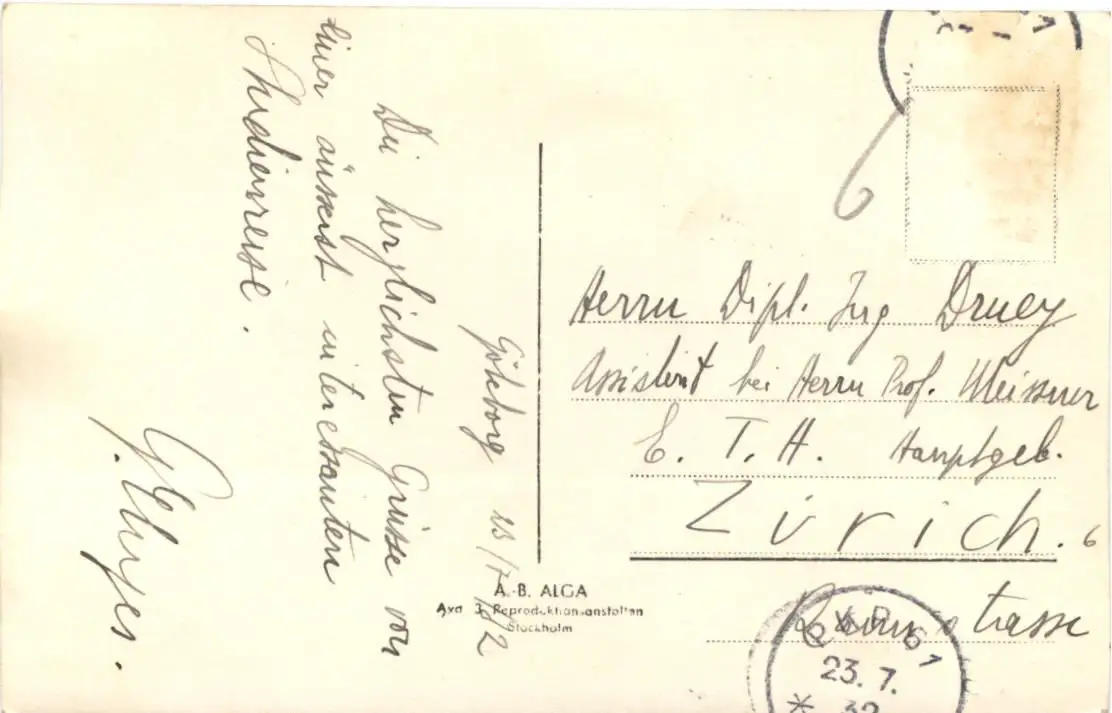 Göteborg 23/7 32
Die herzlichsten Grüsse von
einer äusserst interessanten
Studienreise.
Herrn Dipl. Ing Druey
Assistent bei Herrn Prof. Meissner
E. T. H. Hauptgeb.
Zürich. 6
A.-B. ALGA
Reproduktionsanstalten
Stockholm
23. 7.
32
6